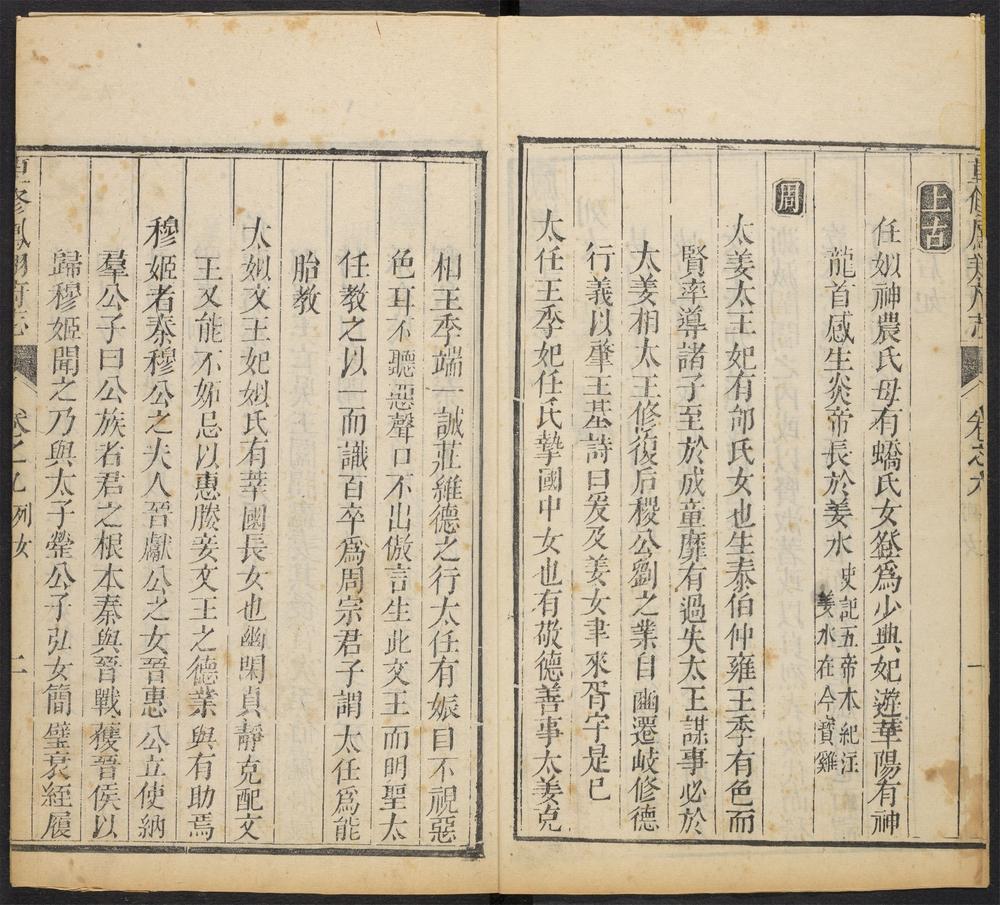 重修鳳翔府志 卷之六 一
上古
任姒神農氏母有蟜氏女登爲少典妃遊華陽有神
龍首感生炎帝長於姜水 史記五帝本紀注
姜水在今寶雞
周
太姜太王妃有邰氏女也生泰伯仲雍王季有色而
賢率導諸子至於成童靡有過失太王謀事必於
太姜相太王修復后稷公劉之業自豳遷岐修德
行義以肇王基詩曰爰及姜女聿來胥宇是已
太任王季妃任氏摯國中女也有敬德善事太姜克
相王季端一誠莊維德之行太任有娠目不視惡
色耳不聽惡聲口不出傲言生此文王而明聖太
任教之以一而識百卒爲周宗君子謂太任爲能
胎教
太姒文王妃姒氏有莘國長女也幽閑貞靜克配文
王又能不妬忌以惠媵妾文王之德業與有助焉
穆姬者秦穆公之夫人晉獻公之女晉惠公立使納
羣公子曰公族者君之根本秦與晉戰獲晉侯以
歸穆姬聞之乃與太子罃公子弘女簡璧衰絰履
重修鳳翔府志 卷之九 列女 二